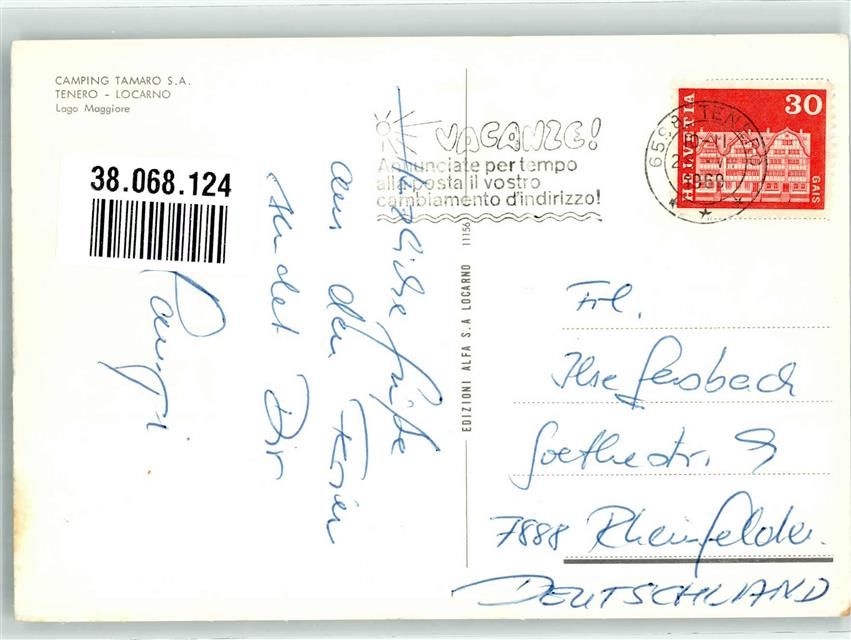 CAMPING TAMARO S.A.
TENERO - LOCARNO
Lago Maggiore
38.068.124
Herzliche Grüße
aus den Ferien
sendet Dir
VACANZE!
Annunciate per tempo
alla posta il vostro
cambiamento d'indirizzo!
EDIZIONI ALFA S.A LOCARNO 11156
HELVETIA
30
GAIS
6598 TENERO
1969
Frl.
Ilse Gersbach
Goethestr. 9
7888 Rheinfelden
DEUTSCHLAND